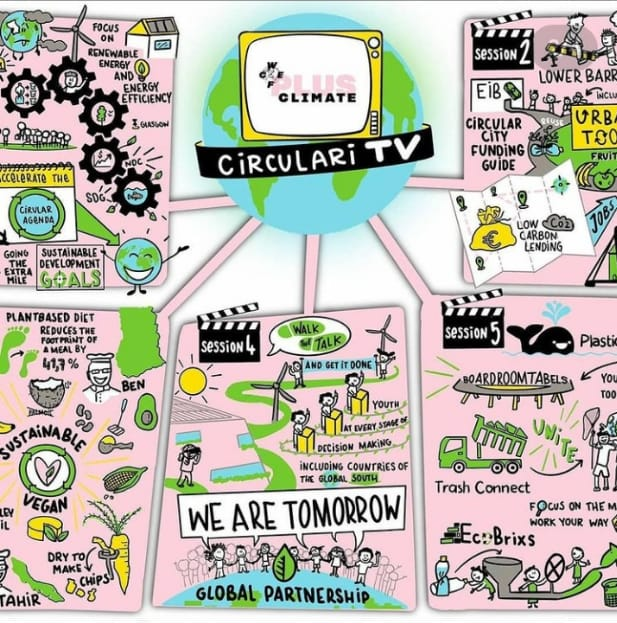 FOCUS ON
RENEWABLE
ENERGY
AND
ENERGY
EFFICIENCY
GLASGOW
NDC
SDG
ACCELERATE THE
CIRULAR
AGENDA
GOING
THE
EXTRA
MILE
SUSTAINABLE
DEVELOPMENT
GOALS
PLUS
CLIMATE
CiRCULARi TV
SESSION 2
LOWER BARR
EiB
INCLU
CIRCULAR
CITY
FUNDING
GUIDE
REUSE
URBA
TOO
FRUIT
LOW CO2
CARBON
LENDING
JOBS
PLANTBASED DIET
REDUCES THE
FOOTPRINT OF
A MEAL BY
41,7%
BEN
SUSTAINABLE
VEGAN
DRY TO
MAKE
CHIPS
TAHIR
SESSION 4
WALK
THE
TALK
AND GET IT DONE
YOUTH
AT EVERY STAGE OF
DECISION MAKING
INCLUDING COUNTRIES OF
THE GLOBAL SOUTH
WE ARE TOMORROW
GLOBAL PARTNERSHiP
SESSION 5
Plastic
BOARDROOMTABELS
YOU
TOO
UNITE
Trash Connect
FOCUS ON THE M
WORK YOUR WAY
EcoBrixs